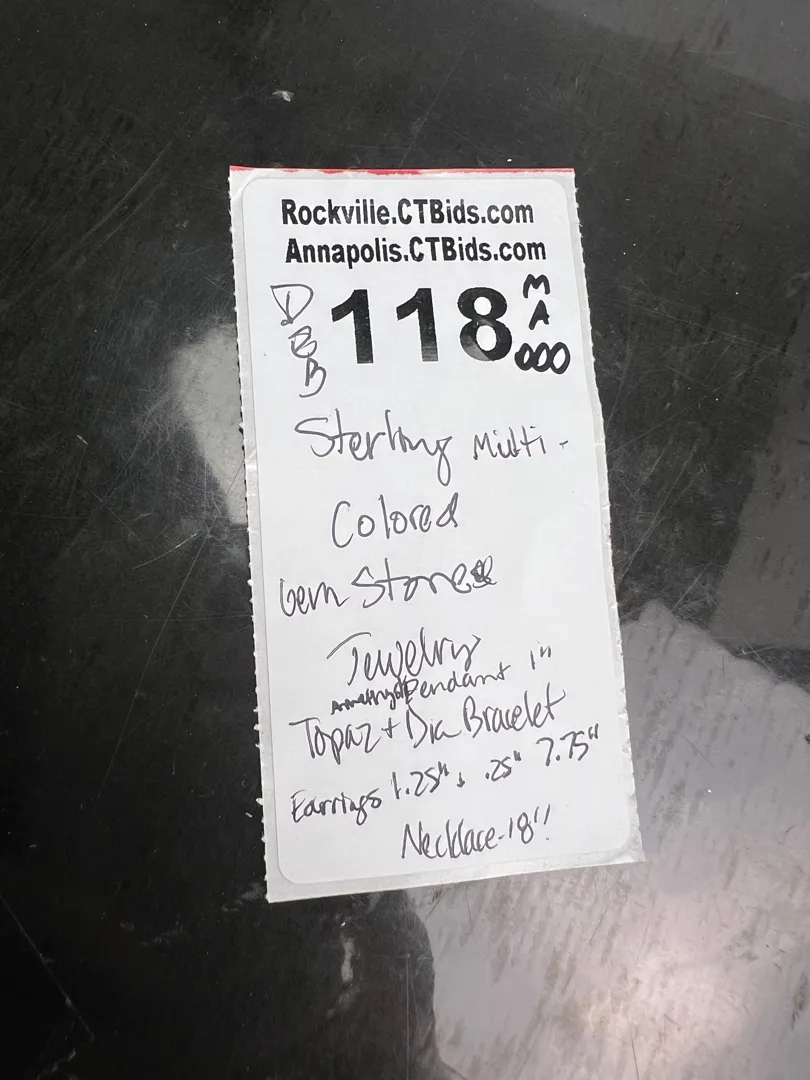 Rockville.CTBids.com
Annapolis.CTBids.com
D
B
B
118
M
A
000
Sterling Multi-
Colored
Gem Stone
Jewelry
Amethyst Pendant 1"
Topaz + Dia Bracelet
Earrings 1.25" & .25" 7.75"
Necklace-18"